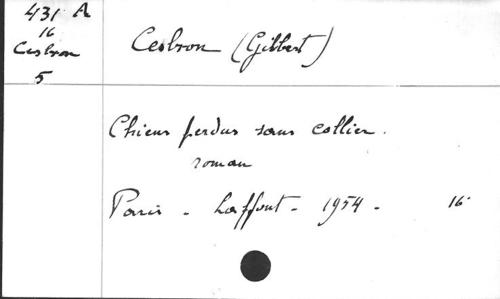 431 A
16
Cesbron
5
Cesbron (Gilbert)
Chiens perdus sans collier.
roman
Paris - Laffont - 1954 - 16